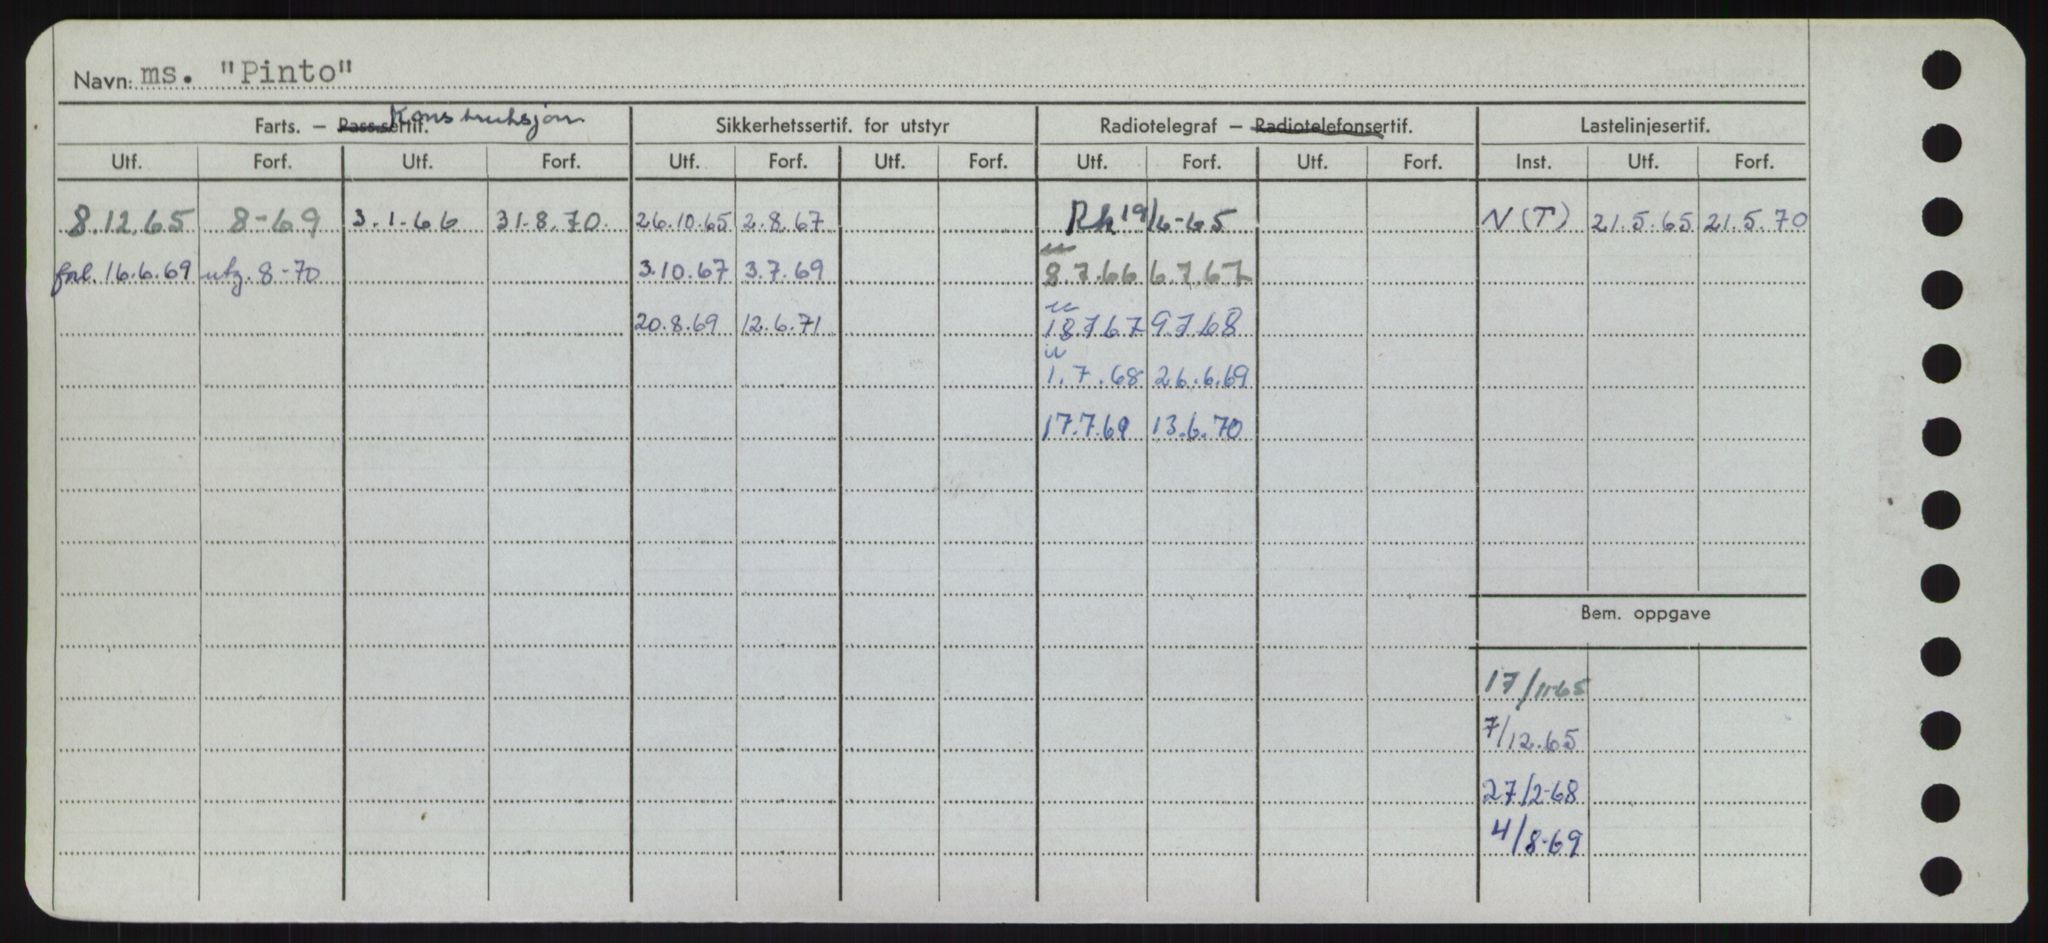 Navn: ms. "Pinto"
Konstruksjon
Farts. – Pass.sertif. Sikkerhetssertif. for utstyr Radiotelegraf – Radiotelefonsertif. Lastelinjesertif.
Utf. Forf. Utf. Forf. Utf. Forf. Utf. Forf. Utf. Forf. Utf. Forf. Inst. Utf. Forf.
8.12.65 8-69 3.1-66 31.8.70. 26.10.65 2.8.67 Rk 19/6-65 N(T) 21.5.65 21.5.70
frl. 16.6.69 utg. 8-70 3.10.67 3.7.69 8.7.66 6.7.67
20.8.69 12.6.71 18.7.67 9.7.68
1.7.68 26.6.69
17.7.69 13.6.70
Bem. oppgave
17/11-65
7/12.65
27/2-68
4/8-69